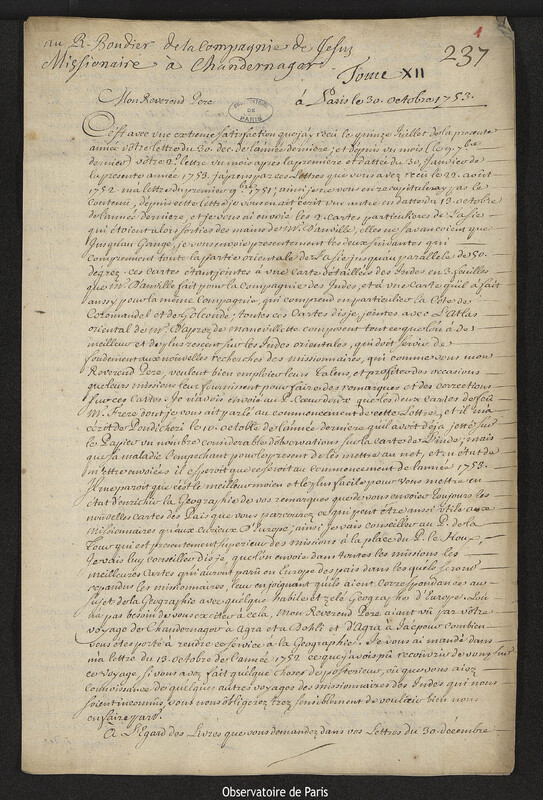 1
237
au R. P. Boudier de la Compagnie de Jesus
Missionaire a Chandernagor
Tome XII
Mon Reverend Pere
à Paris le 30. octobre 1753.
OBSERVATOIRE DE PARIS
C'est avec une extreme satisfaction que j'ay recû le quinze Juillet de la presente
année vôtre lettre du 30. dec. de l'année derniere; et depuis un mois (le 9. 7bre
dernier) vôtre 2e. lettre un mois aprés la premiere et dattée du 30. Janvier de
la presente année 1753. j'apprens par ces lettres que vous avez recû le 22. août
1752. ma lettre du premier 9bre. 1751; ainsi je ne vous en recapituleray pas le
contenû, depuis cette lettre je vous en ait écrit une autre en datte du 13. octobre
de l'année derniere, et je vous ai envoié les 2. cartes particulieres de l'asie
qui étoient alors sorties des mains de Mr. Danville, elles ne s'avancoient que
jusqu'au Gange, je vous envoie presentement les deux suivantes qui
comprennent toute la partie orientale de l'asie jusqu'au parallele de 50.
degrez. ces cartes étant jointes à une carte détaillée des Indes en 3. feuilles
que Mr. Danville fait pour la Compagnie des Indes, et à une carte qu'il a fait
aussy pour la même Compagnie qui comprend en particulier la Côte de
Coromandel et de Golconde; toutes ces Cartes dis je jointes avec l'atlas
oriental de Mr. Daprez de Manevillette composent tout ce que l'on a de
meilleur et de plus recent sur les Indes orientales, qui doit servir de
fondement aux nouvelles recherches des missionaires, qui comme vous mon
Reverend Pere, veulent bien emploier leurs talens, et profiter des occasions
que leurs missions leur fournissent pour faire des remarques et des corrections
sur ces Cartes. Je n'avois envoié au P. Cœurdoux que les deux cartes de feu
Mr. Frere dont je vous ait parlé au commencement de cette Lettre, et il m'a
écrit de Pondicheri le 10. octobre de l'année derniere qu'il avoit déja jetté sur
le Papier un nombre considerable d'observations sur la carte de l'Inde; mais
que sa maladie l'empechant pour le present de les mettre au net, et en état de
m'être envoiées il esperoit que ce seroit au commencement de l'année 1753.
Il me paroit que c'est le meilleur moien et le plus facile pour vous mettre en
etat d'enrichir la Geographie de vos remarques que de vous envoier toujours les
nouvelles cartes des Païs que vous parcourez, ce qui peut être aussi utile aux
missionaires qu'aux curieux d'Europe; ainsi je vais conseiller au P. de la
Tour qui est presentement superieur des missions à la place du P. le Houx,
Je vais luy conseiller dis je, que l'on envoie dans toutes les missions les
meilleures Cartes qui auront parû en Europe des païs dans les quels seront
repandus les missionaires, leur enjoignant qu'ils aient correspondance au
sujet de la Geographie avec quelque habile et zelé Geographe d'Europe. L'on
n'a pas besoin de vous exciter à cela, Mon Reverend Pere aiant vû par vôtre
voyage de Chandernagor à Agra et à Dehli et d'Agra à Jaepour combien
vous êtes porté à rendre ce service à la Geographie. Je vous ai mandé dans
ma lettre du 13. octobre de l'année 1752. ce que j'avois pû recevoir de vous sur
ce voyage, si vous avez fait quelque choses de posterieur, ou que vous aiez
connoissance de quelques autres voyages des missionaires des Indes qui nous
soient inconnus, vous nous obligerez tres sensiblement de vouloir bien nous
en faire part.
A l'Egard des Livres que vous demandez dans vos Lettres du 30. decembre
Observatoire de Paris